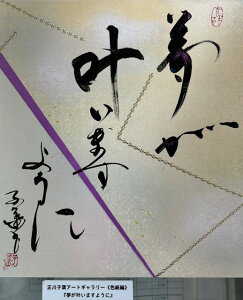 夢が
叶います
ように
正川子葉アートギャラリー《色紙編》
『夢が叶いますように』